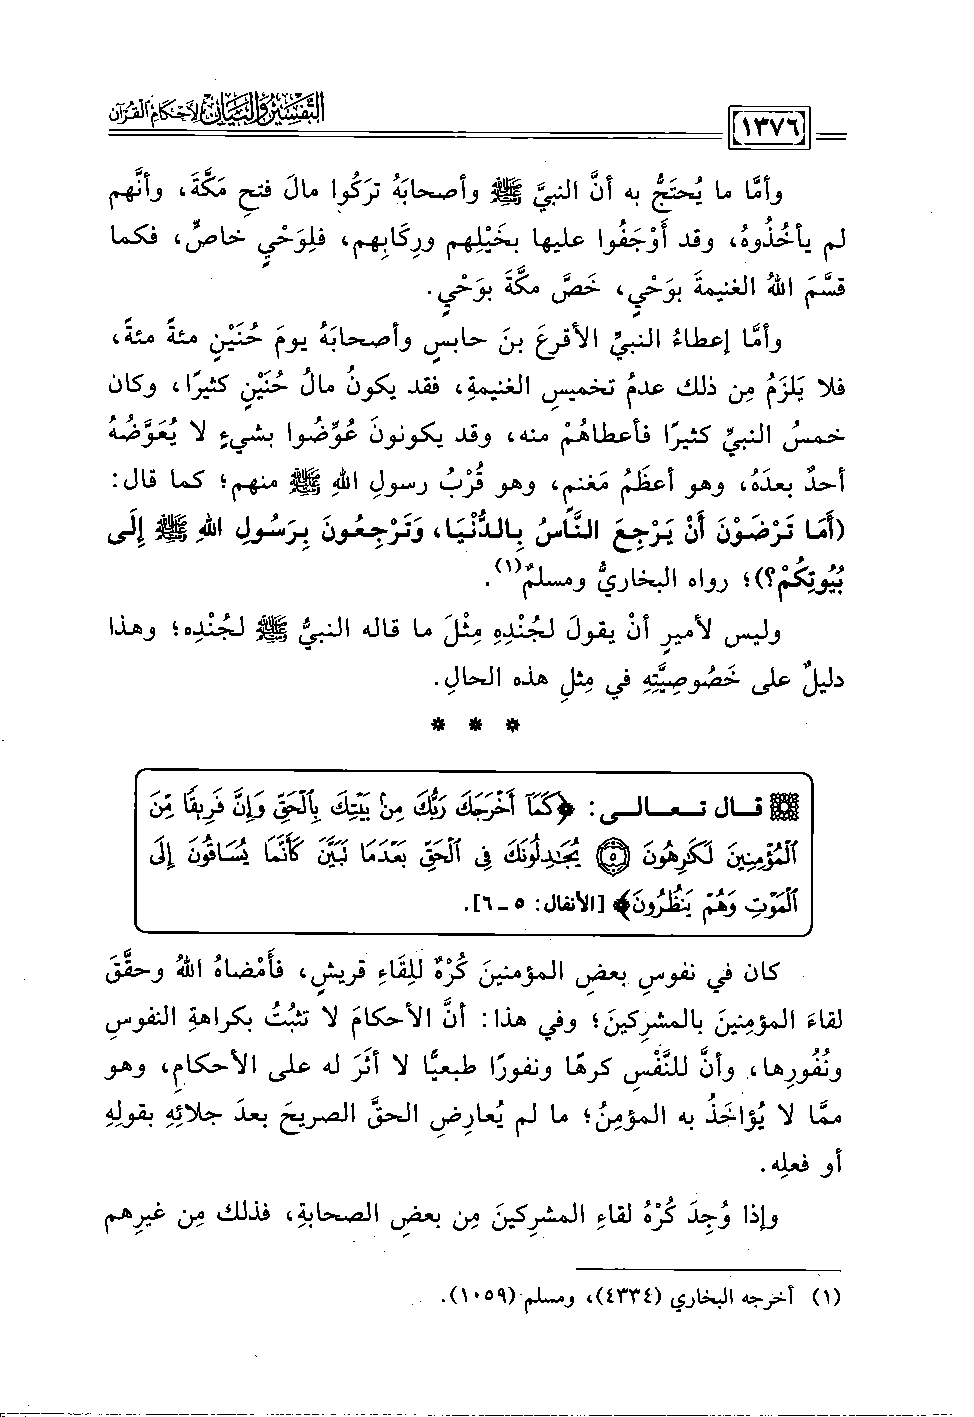 التفسير والبيان لأحكام القرآن
١٣٧٦
وأمَّا ما يُحتَجُّ به أنَّ النبيَّ ﷺ وأصحابَهُ تَرَكُوا مالَ فتحِ مَكَّةَ، وأنَّهم
لم يأخُذُوهُ، وقد أَوْجَفُوا عليها بخَيْلِهم ورِكَابِهم، فلِوَحْيٍ خاصٍّ، فكما
قسَّمَ اللهُ الغنيمةَ بوَحْيٍ، خَصَّ مكَّةَ بوَحْيٍ.
وأمَّا إعطاءُ النبيِّ الأقرعَ بنَ حابسٍ وأصحابَهُ يومَ حُنَيْنٍ مئةً مئةً،
فلا يَلزَمُ مِن ذلك عدمُ تخميسِ الغنيمةِ، فقد يكونُ مالُ حُنَيْنٍ كثيرًا، وكان
خمسُ النبيِّ كثيرًا فأعطاهُمْ منه، وقد يكونونَ عُوِّضُوا بشيءٍ لا يُعَوَّضُهُ
أحدٌ بعدَهُ، وهو أعظَمُ مَغنمٍ، وهو قُرْبُ رسولِ اللهِ ﷺ منهم؛ كما قال:
(أَمَا تَرْضَوْنَ أَنْ يَرْجِعَ النَّاسُ بِالدُّنْيَا، وَتَرْجِعُونَ بِرَسُولِ اللهِ ﷺ إِلَى
بُيُوتِكُمْ؟)؛ رواه البخاريُّ ومسلمٌ(١).
وليس لأميرٍ أنْ يقولَ لجُنْدِهِ مِثْلَ ما قاله النبيُّ ﷺ لجُنْدِه؛ وهذا
دليلٌ على خَصُوصِيَّتِهِ في مِثلِ هذه الحالِ.
* * *
قال تعالى: ﴿كَمَآ أَخْرَجَكَ رَبُّكَ مِنۢ بَيْتِكَ بِٱلْحَقِّ وَإِنَّ فَرِيقًا مِّنَ
ٱلْمُؤْمِنِينَ لَكَٰرِهُونَ ۝٥ يُجَٰدِلُونَكَ فِى ٱلْحَقِّ بَعْدَمَا تَبَيَّنَ كَأَنَّمَا يُسَاقُونَ إِلَى
ٱلْمَوْتِ وَهُمْ يَنظُرُونَ﴾ [الأنفال: ٥ - ٦].
كان في نفوسِ بعضِ المؤمنينَ كُرْهٌ للِقَاءِ قريشٍ، فأَمْضاهُ اللهُ وحقَّقَ
لقاءَ المؤمِنينَ بالمشرِكينَ؛ وفي هذا: أنَّ الأحكامَ لا تثبُتُ بكراهةِ النفوسِ
ونُفُورِها، وأنَّ للنَّفْسِ كرهًا ونفورًا طبعيًّا لا أثَرَ له على الأحكامِ، وهو
ممَّا لا يُؤاخَذُ به المؤمِنُ؛ ما لم يُعارِضِ الحقَّ الصريحَ بعدَ جلائِهِ بقولِهِ
أو فعلِه.
وإذا وُجِدَ كُرْهُ لقاءِ المشركينَ مِن بعضِ الصحابةِ، فذلك مِن غيرِهم
(١) أخرجه البخاري (٤٣٣٤)، ومسلم (١٠٥٩).